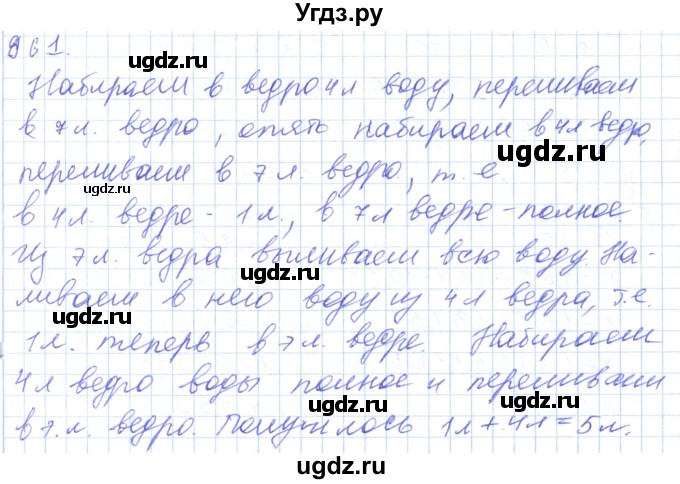 Угдз.ру
861.
Набираем в ведро 4л воду, переливаем
в 7л. ведро, опять набираем в 4л ведро,
переливаем в 7л. ведро, т.е.
в 4л. ведре - 1л., в 7л ведре - полное.
Из 7л. ведра выливаем всю воду. На-
ливаем в него воду из 4л ведра, т.е.
1л. теперь в 7л. ведре. Набираем
4л ведро воды полное и переливаем
в 7.л. ведро. Получилось 1л + 4л = 5л.
ugdz.ru
ugdz.ru
ugdz.ru
ugdz.ru
ugdz.ru
ugdz.ru
ugdz.ru
ugdz.ru
ugdz.ru
ugdz.ru